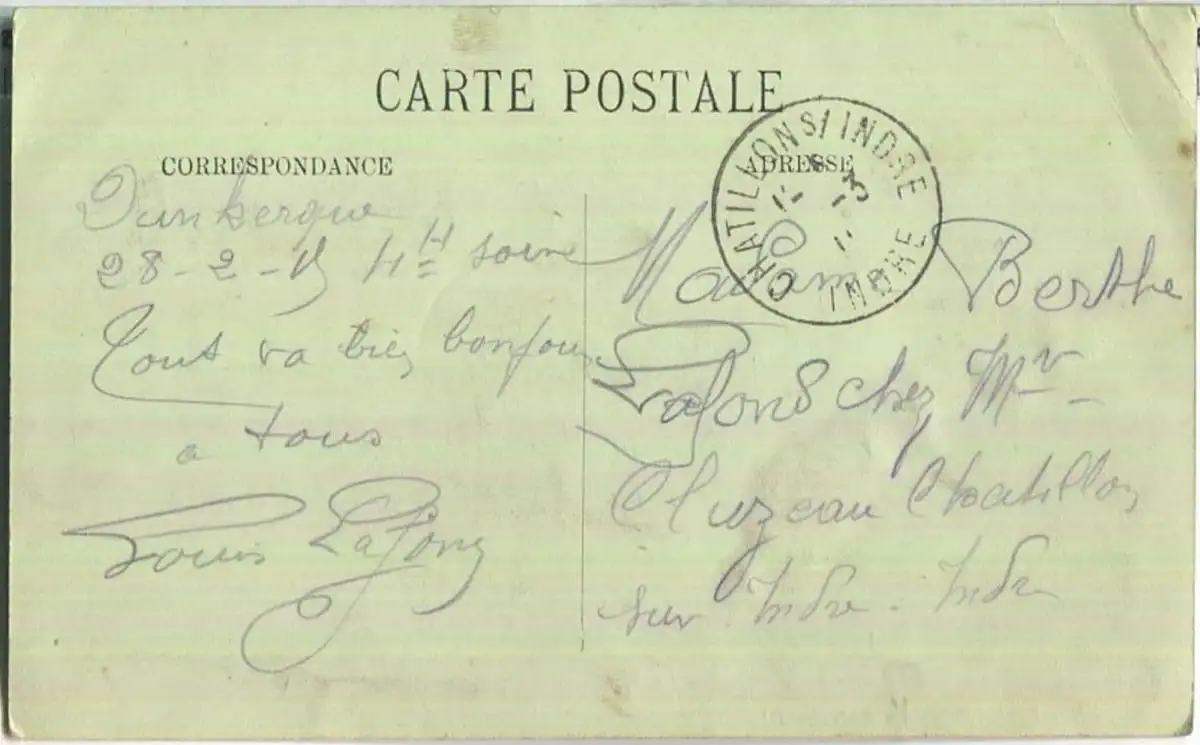 CARTE POSTALE
CORRESPONDANCE
Dunkerque
28-2-15 4H soire
Tout va bien bonjour
a tous
Louis Lafond
ADRESSE
CHATILLON S/ INDRE
INDRE
Madame Berthe
Lafond chez Mr
Cluzeau Chatillon
sur Indre - Indre